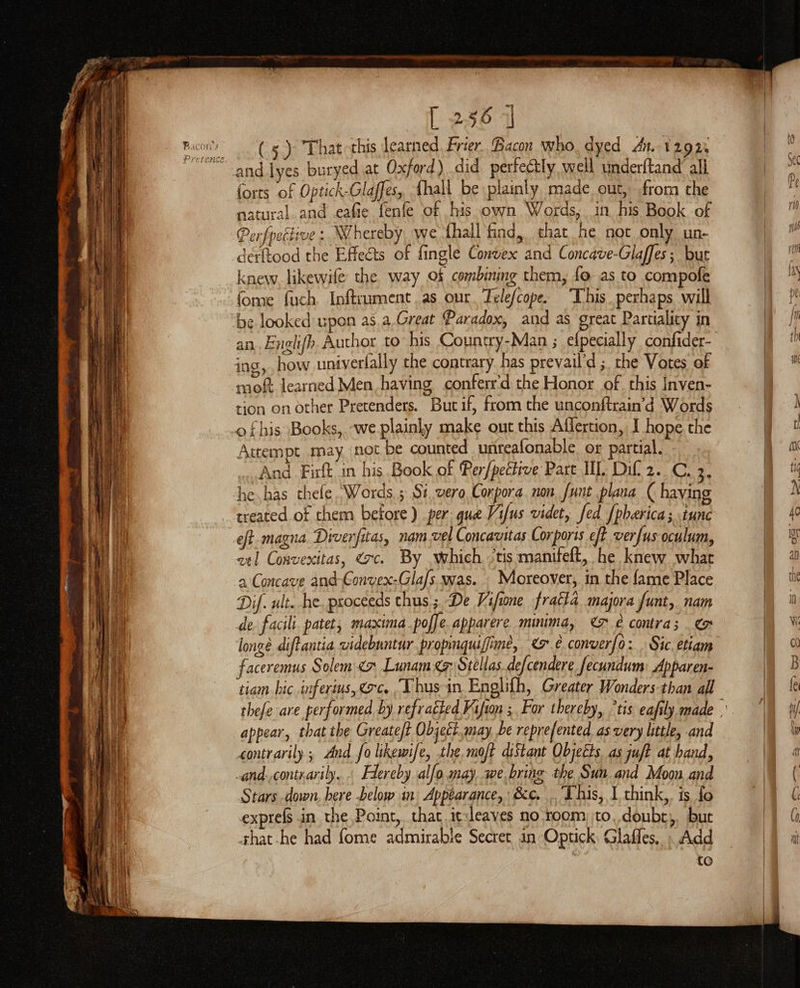 [ 256 ]
Bacon's
Pretence.
(5) That this learned Frier Bacon who dyed An. 1292.
and lyes buryed at Oxford) did perfectly well underſtand all
ſorts of Optick-Glaſſes, ſhall be plainly made out, from the
natural and eaſie ſenſe of his own Words, in his Book of
Perſpective: Whereby we ſhall find, that he not only un-
derſtood the Effects of ſingle Convex and Concave-Glaſſes; but
knew likewiſe the way of combining them, ſo as to compoſe
ſome ſuch Inſtrument as our Teleſcope. This perhaps will
be looked upon as a Great Paradox, and as great Partiality in
an Engliſh Author to his Country-Man; eſpecially conſider-
ing, how univerſally the contrary has prevail'd; the Votes of
moſt learned Men having conferr'd the Honor of this Inven-
tion on other Pretenders. But if, from the unconſtrain'd Words
of his Books, we plainly make out this Aſſertion, I hope the
Attempt may not be counted unreaſonable or partial.
And Firſt in his Book of Perſpective Part III. Diſ. 2. C. 3.
he has theſe Words; Si vero Corpora non ſunt plana (having
treated of them before) per quæ Viſus videt, ſed ſphærica; tunc
eſt magna Diverſitas, nam vel Concavitas Corporis eſt verſus oculum,
vel Convexitas, &c. By which 'tis manifeſt, he knew what
a Concave and Convex-Glaſs was. Moreover, in the ſame Place
Diſ. ult. he proceeds thus; De Viſione fractâ majora ſunt, nam
de facili patet, maxima poſſe apparere minima, & è contra; &
longè diſtantia videbuntur propinquiſſimè, & è converſo: Sic etiam
faceremus Solem & Lunam & Stellas deſcendere ſecundum Apparen-
tiam hic inferius, &c. Thus in Engliſh, Greater Wonders than all
theſe are performed by refracted Viſion; For thereby, 'tis eaſily made
appear, that the Greateſt Object may be repreſented as very little, and
contrarily; And ſo likewiſe, the moſt diſtant Objects as juſt at hand,
and contrarily. Hereby alſo may we bring the Sun and Moon and
Stars down here below in Appearance, &c. This, I think, is ſo
expreſs in the Point, that it leaves no room to doubt, but
that he had ſome admirable Secret in Optick Glaſſes. Add
to